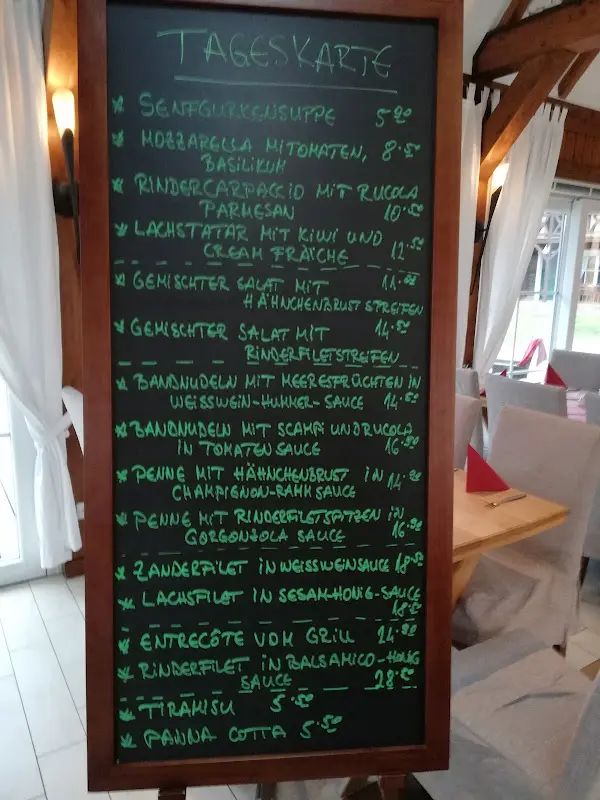 TAGESKARTE
* SENFGURKENSUPPE 5.90
* MOZZARELLA MIT TOMATEN, 8.50
BASILIKUM
* RINDERCARPACCIO MIT RUCOLA
PARMESAN 10.50
* LACHSTATAR MIT KIWI UND
CREAM FRAÎCHE 12.50
* GEMISCHTER SALAT MIT
HÄHNCHENBRUSTSTREIFEN
* GEMISCHTER SALAT MIT 14.50
RINDERFILETSTREIFEN
* BANDNUDELN MIT MEERESFRÜCHTEN IN
WEISSWEIN-HUMMER-SAUCE 14.50
* BANDNUDELN MIT SCAMPI UND RUCOLA
IN TOMATENSAUCE 16.90
* PENNE MIT HÄHNCHENBRUST IN
CHAMPIGNON-RAHMSAUCE
* PENNE MIT RINDERFILETSPITZEN IN
GORGONZOLA SAUCE 16.90
* ZANDERFILET IN WEISSWEINSAUCE 18.50
* LACHSFILET IN SESAM-HONIG-SAUCE
18.50
* ENTRECÔTE VOM GRILL
* RINDERFILET IN BALSAMICO-HONIG
SAUCE 28.50
* TIRAMISU 5.50
* PANNA COTTA 5.50